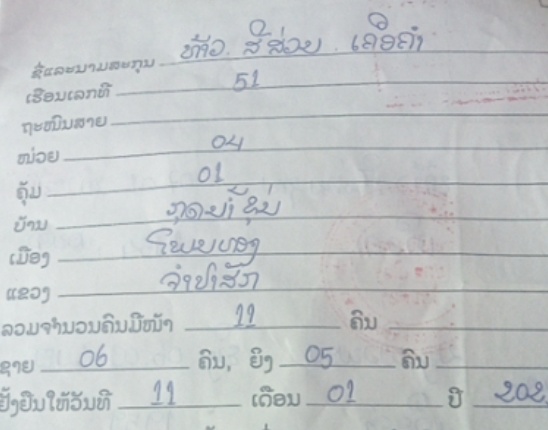 ຊື່ແລະນາມສະກຸນ ທ້າວ ສີສ່ວຍ ເຄືອຄຳ
ເຮືອນເລກທີ 51
ຖະໜົນສາຍ
ໜ່ວຍ 04
ຄຸ້ມ 01
ບ້ານ ກຸດນ້ຳຂຸ່ນ
ເມືອງ ໂພນທອງ
ແຂວງ ຈຳປາສັກ
ລວມຈຳນວນຄົນມີໜ້າ 11 ຄົນ
ຊາຍ 06 ຄົນ, ຍິງ 05 ຄົນ
ຢັ້ງຢືນໃຫ້ວັນທີ 11 ເດືອນ 01 ປີ 202